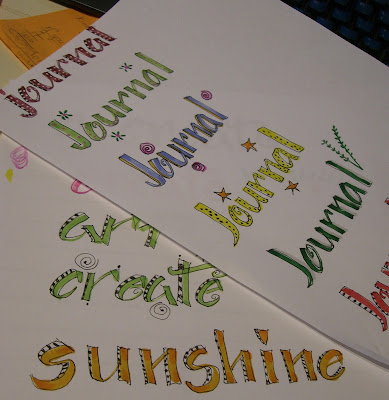 Journal
Journal
Journal
Journal
Journal
art
create
sunshine